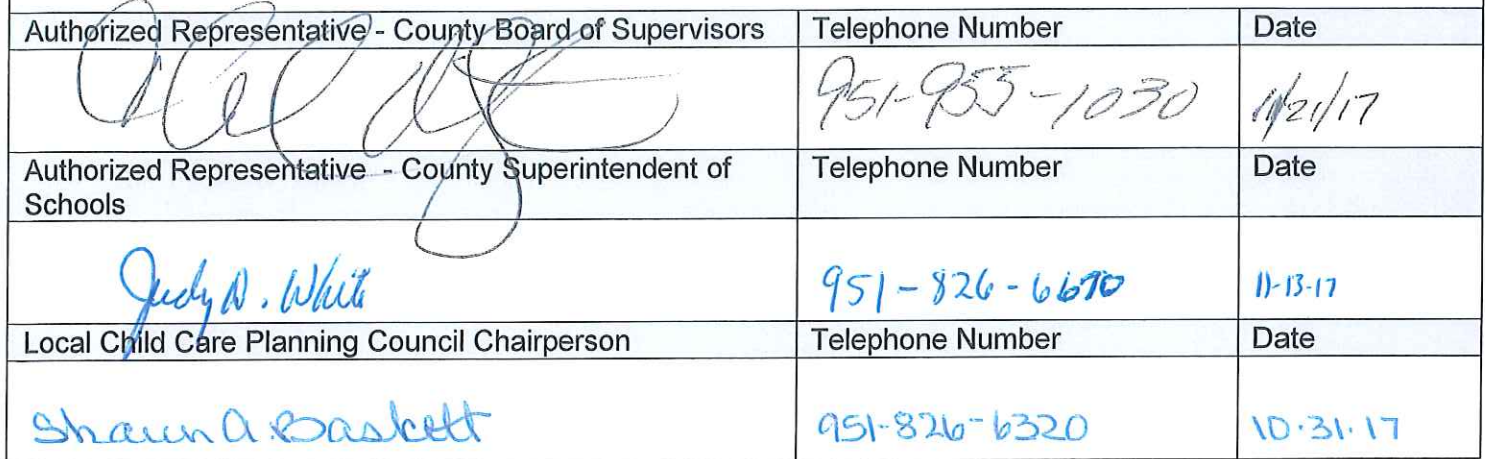 Authorized Representative - County Board of Supervisors Telephone Number Date
951-955-1030 11/21/17
Authorized Representative - County Superintendent of Schools Telephone Number Date
Judy D. White 951-826-6670 11-13-17
Local Child Care Planning Council Chairperson Telephone Number Date
Shaun A. Baskett 951-826-6320 10.31.17